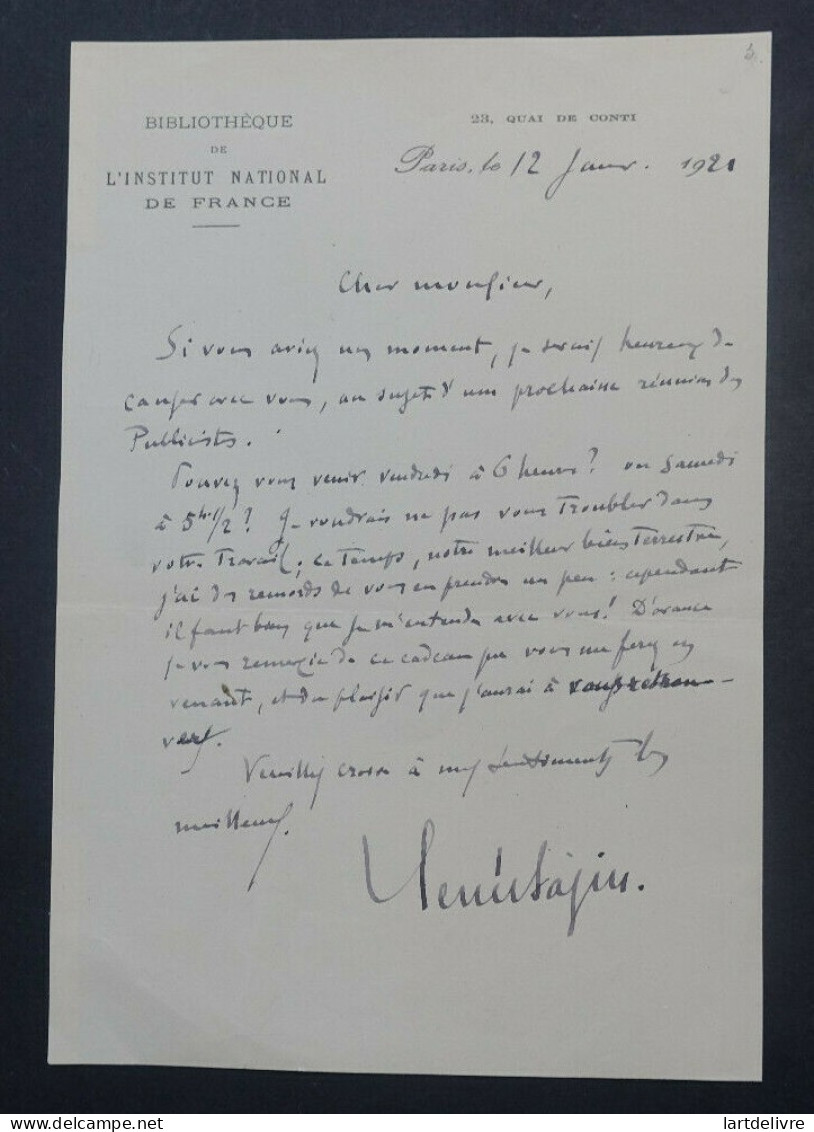 BIBLIOTHÈQUE
DE
L'INSTITUT NATIONAL
DE FRANCE
23, QUAI DE CONTI
Paris, le 12 Janv. 1921
Cher monsieur,
Si vous aviez un moment, je serais heureux de
causer avec vous, au sujet d'une prochaine réunion des
Publicistes.
Pouvez vous venir vendredi à 6 heures? ou Samedi
à 5h1/2? Je voudrais ne pas vous troubler dans
votre travail; ce temps, notre meilleur bien terrestre,
j'ai des remords de vous en prendre un peu: cependant
il faut bien que je m'entende avec vous! D'avance
je vous remercie de ce cadeau que vous me ferez en
venant, et du plaisir que j'aurai à vous retrou-
ver.
Veuillez croire à mes sentiments les
meilleurs.
delcampe.net
lartdelivre